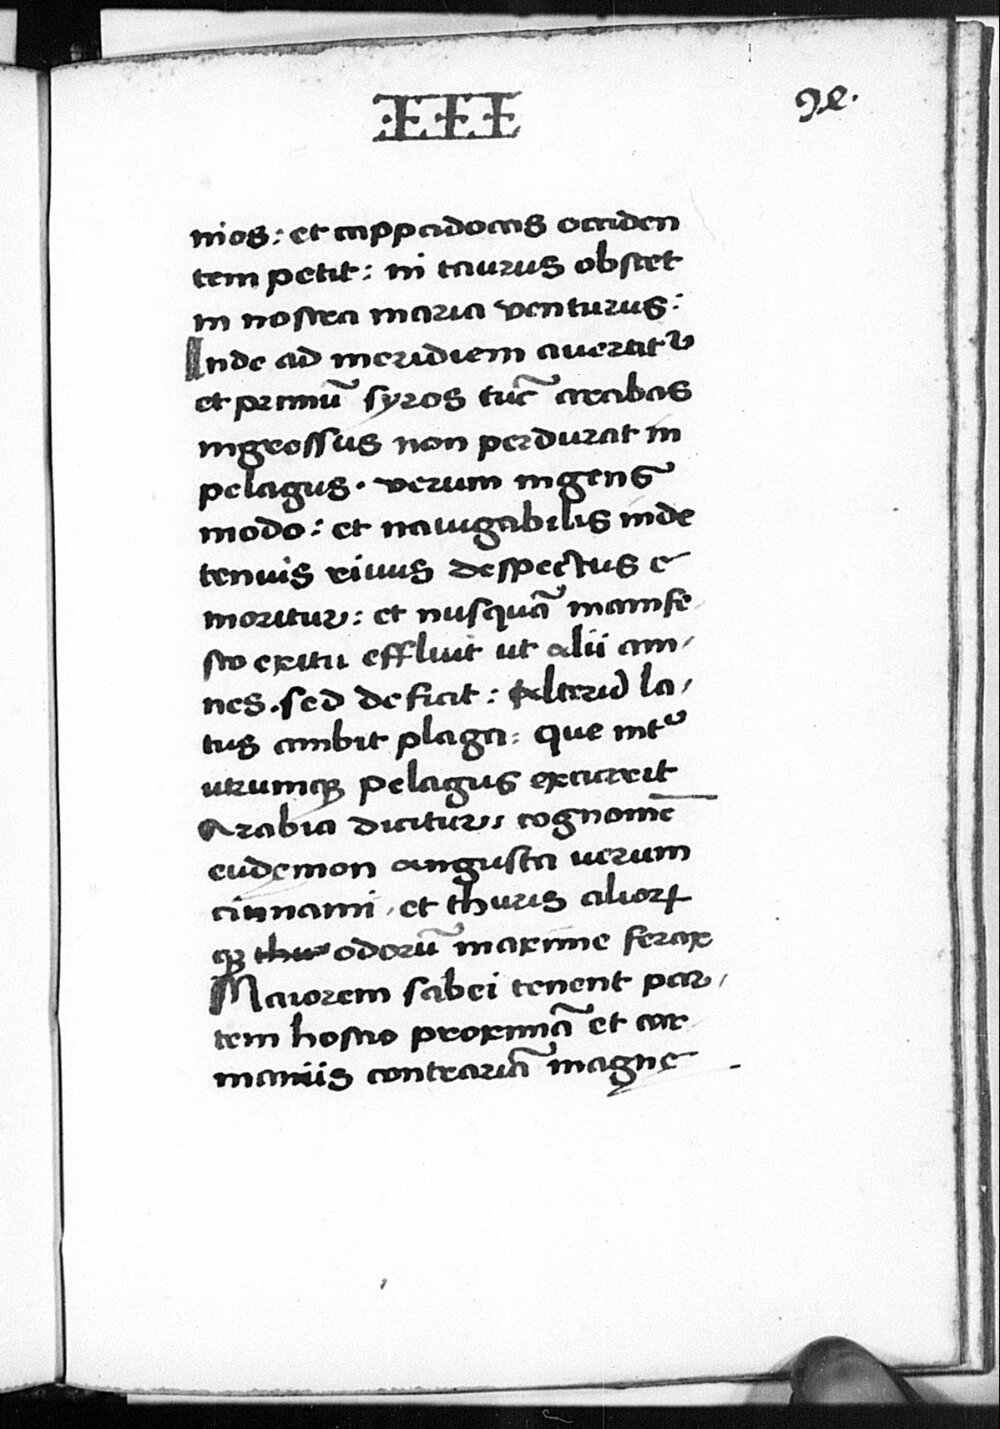 III 92.
nios: et cappadocas occiden
tem petit: ni taurus obstet
in nostra maria venturus:
Inde ad meridiem avertitᷣ
et primū syros tūc arabas
ingrossus non perdurat in
pelagus. verum ingens
modo: et navigabilis inde
tenuis rivus despectus e
moritur: et nusquā manife
sto exitu effluit ut alii am,
nes. sed deficit: Alteruɔ la,
tus ambit plaga: que intᷣ
utrumqꝫ pelagus excurrit
Arabia dicitur, cognomē
eudemon angusta uerum
cinnami, et thuris alioꝝ
qꝫ odorū maxime ferax
Maiorem sabei tenent par,
tem hostio proximā et car
maniis contrariā magne